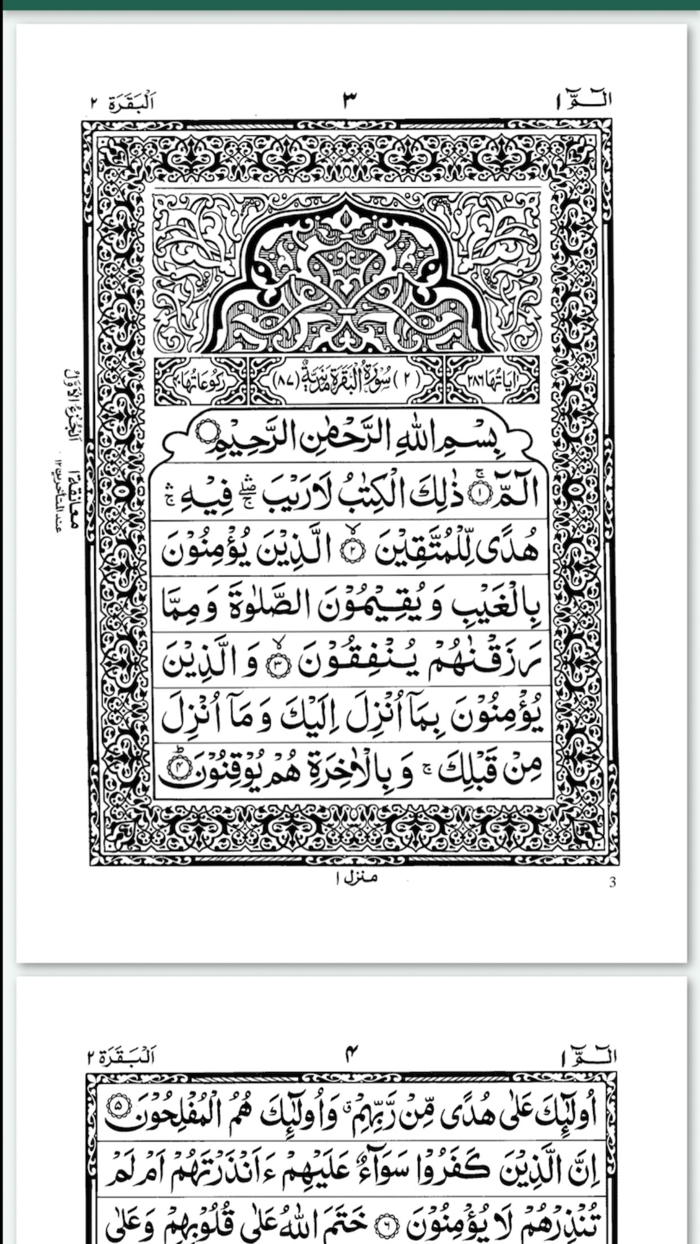 الٓـمّٓ ١
٣
اَلْبَقَرَة ٢
اٰیَاتُهَا ٢٨٦
(٢) سُوْرَةُ الْبَقَرَةِ مَدَنِيَّةٌ (٨٧)
رُكُوْعَاتُهَا ٤٠
بِسْمِ اللّٰهِ الرَّحْمٰنِ الرَّحِيْمِ
الٓمّٓ ۚ ﴿١﴾ ذٰلِكَ الْكِتٰبُ لَا رَيْبَ ۛۖ فِيْهِ ۛۚ
هُدًى لِّلْمُتَّقِيْنَ ۙ ﴿٢﴾ الَّذِيْنَ يُؤْمِنُوْنَ
بِالْغَيْبِ وَيُقِيْمُوْنَ الصَّلٰوةَ وَمِمَّا
رَزَقْنٰهُمْ يُنْفِقُوْنَ ۙ ﴿٣﴾ وَالَّذِيْنَ
يُؤْمِنُوْنَ بِمَاۤ اُنْزِلَ اِلَيْكَ وَمَاۤ اُنْزِلَ
مِنْ قَبْلِكَ ۚ وَبِالْاٰخِرَةِ هُمْ يُوْقِنُوْنَ ؕ ﴿٤﴾
اَلْجُزْءُ الْاَوَّلُ
معانقة ١
عند المتاخرین ١٢
منزل ١
3
الٓـمّٓ ١
۴
اَلْبَقَرَة ٢
اُولٰٓئِكَ عَلٰى هُدًى مِّنْ رَّبِّهِمْ ۗ وَاُولٰٓئِكَ هُمُ الْمُفْلِحُوْنَ ﴿۵﴾
اِنَّ الَّذِيْنَ كَفَرُوْا سَوَآءٌ عَلَيْهِمْ ءَاَنْذَرْتَهُمْ اَمْ لَمْ
تُنْذِرْهُمْ لَا يُؤْمِنُوْنَ ﴿٦﴾ خَتَمَ اللّٰهُ عَلٰى قُلُوْبِهِمْ وَعَلٰى